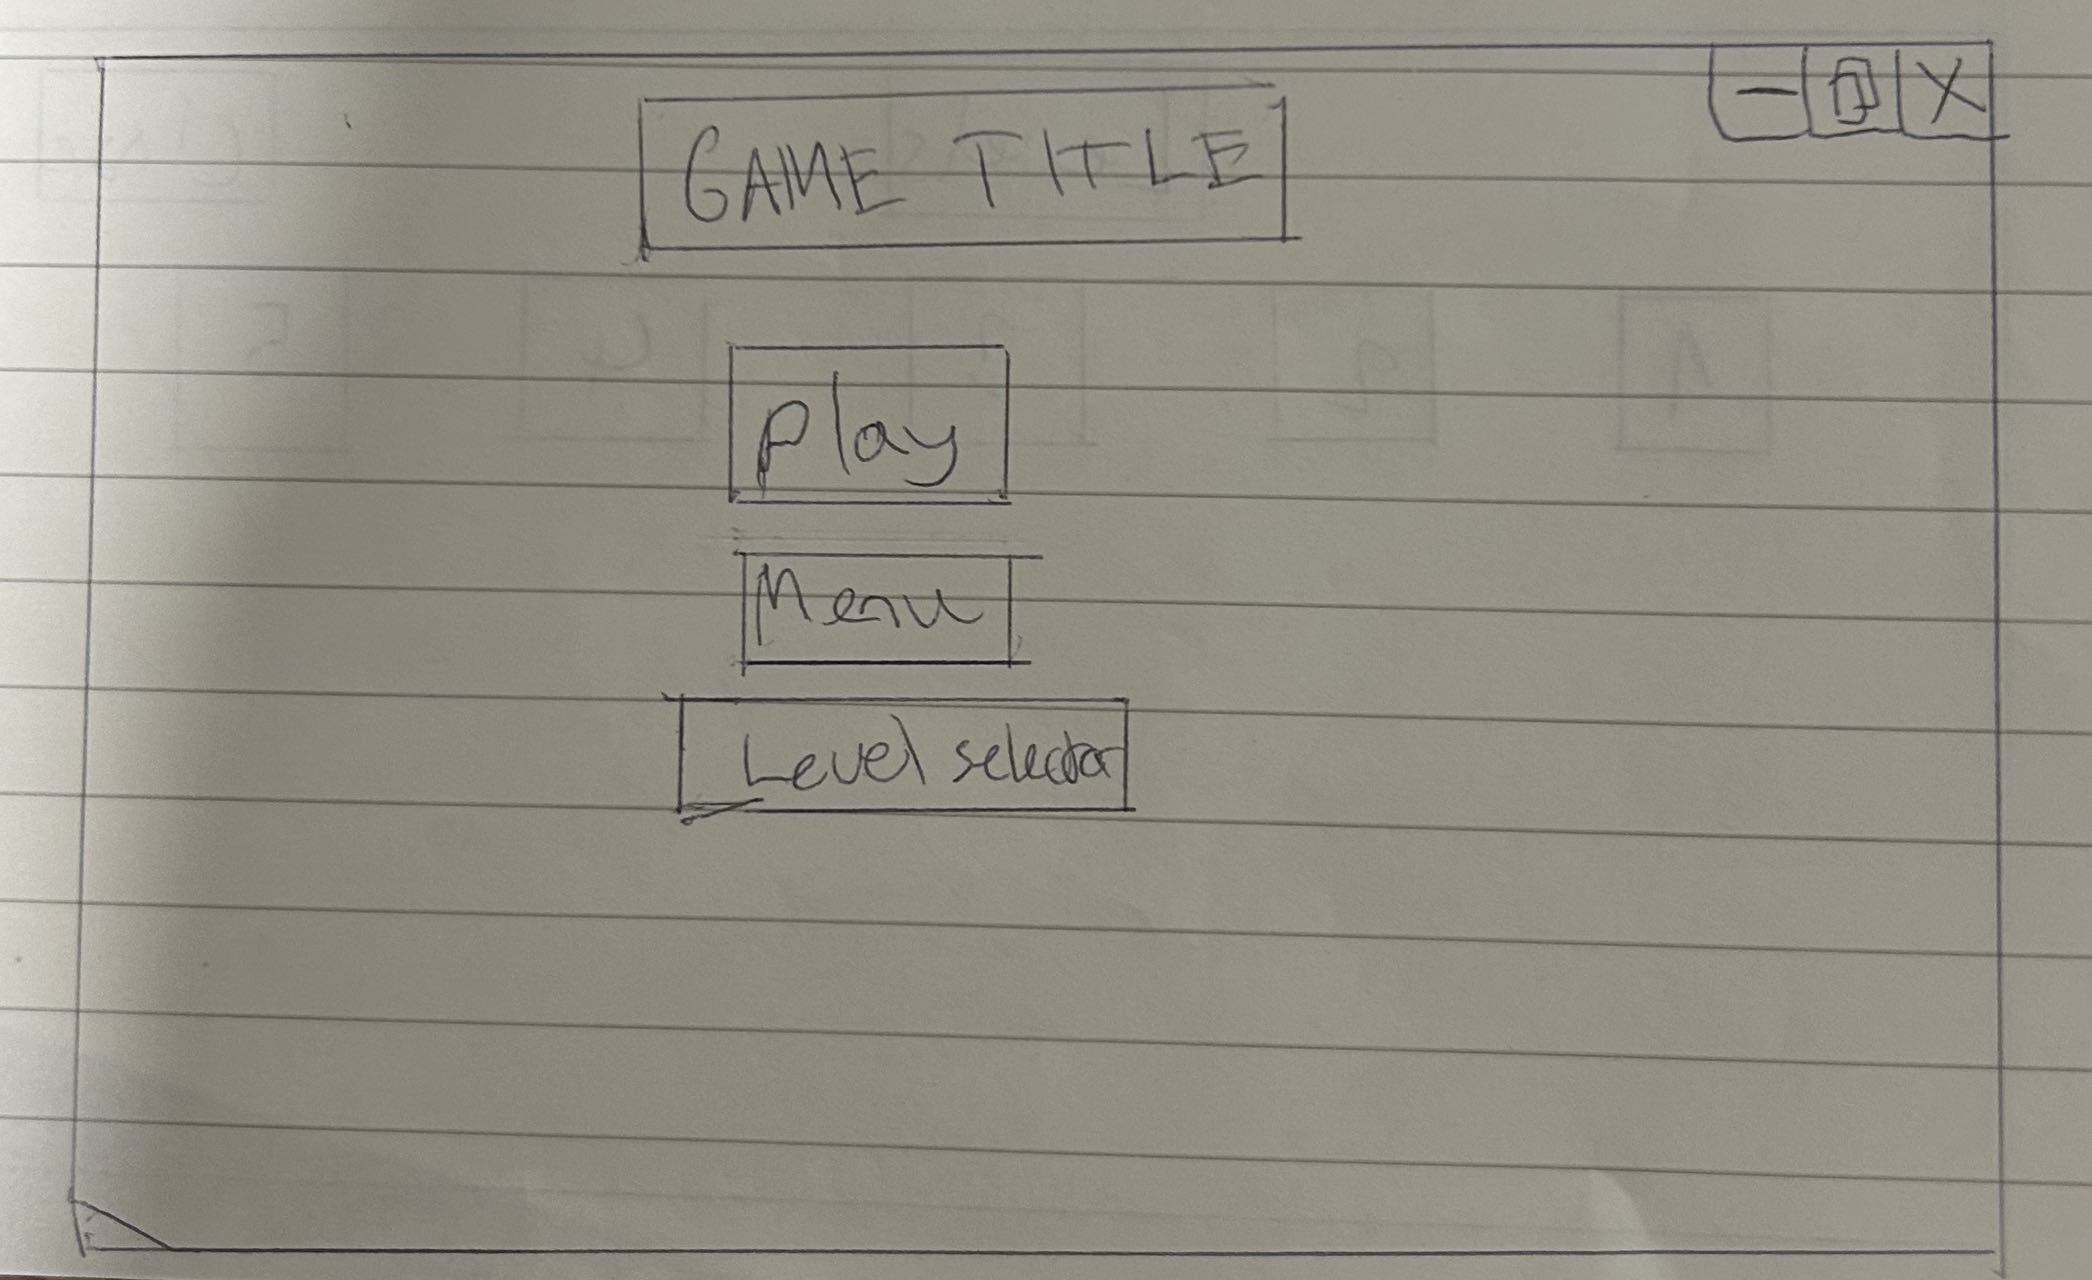 GAME TITLE
Play
Menu
Level selector